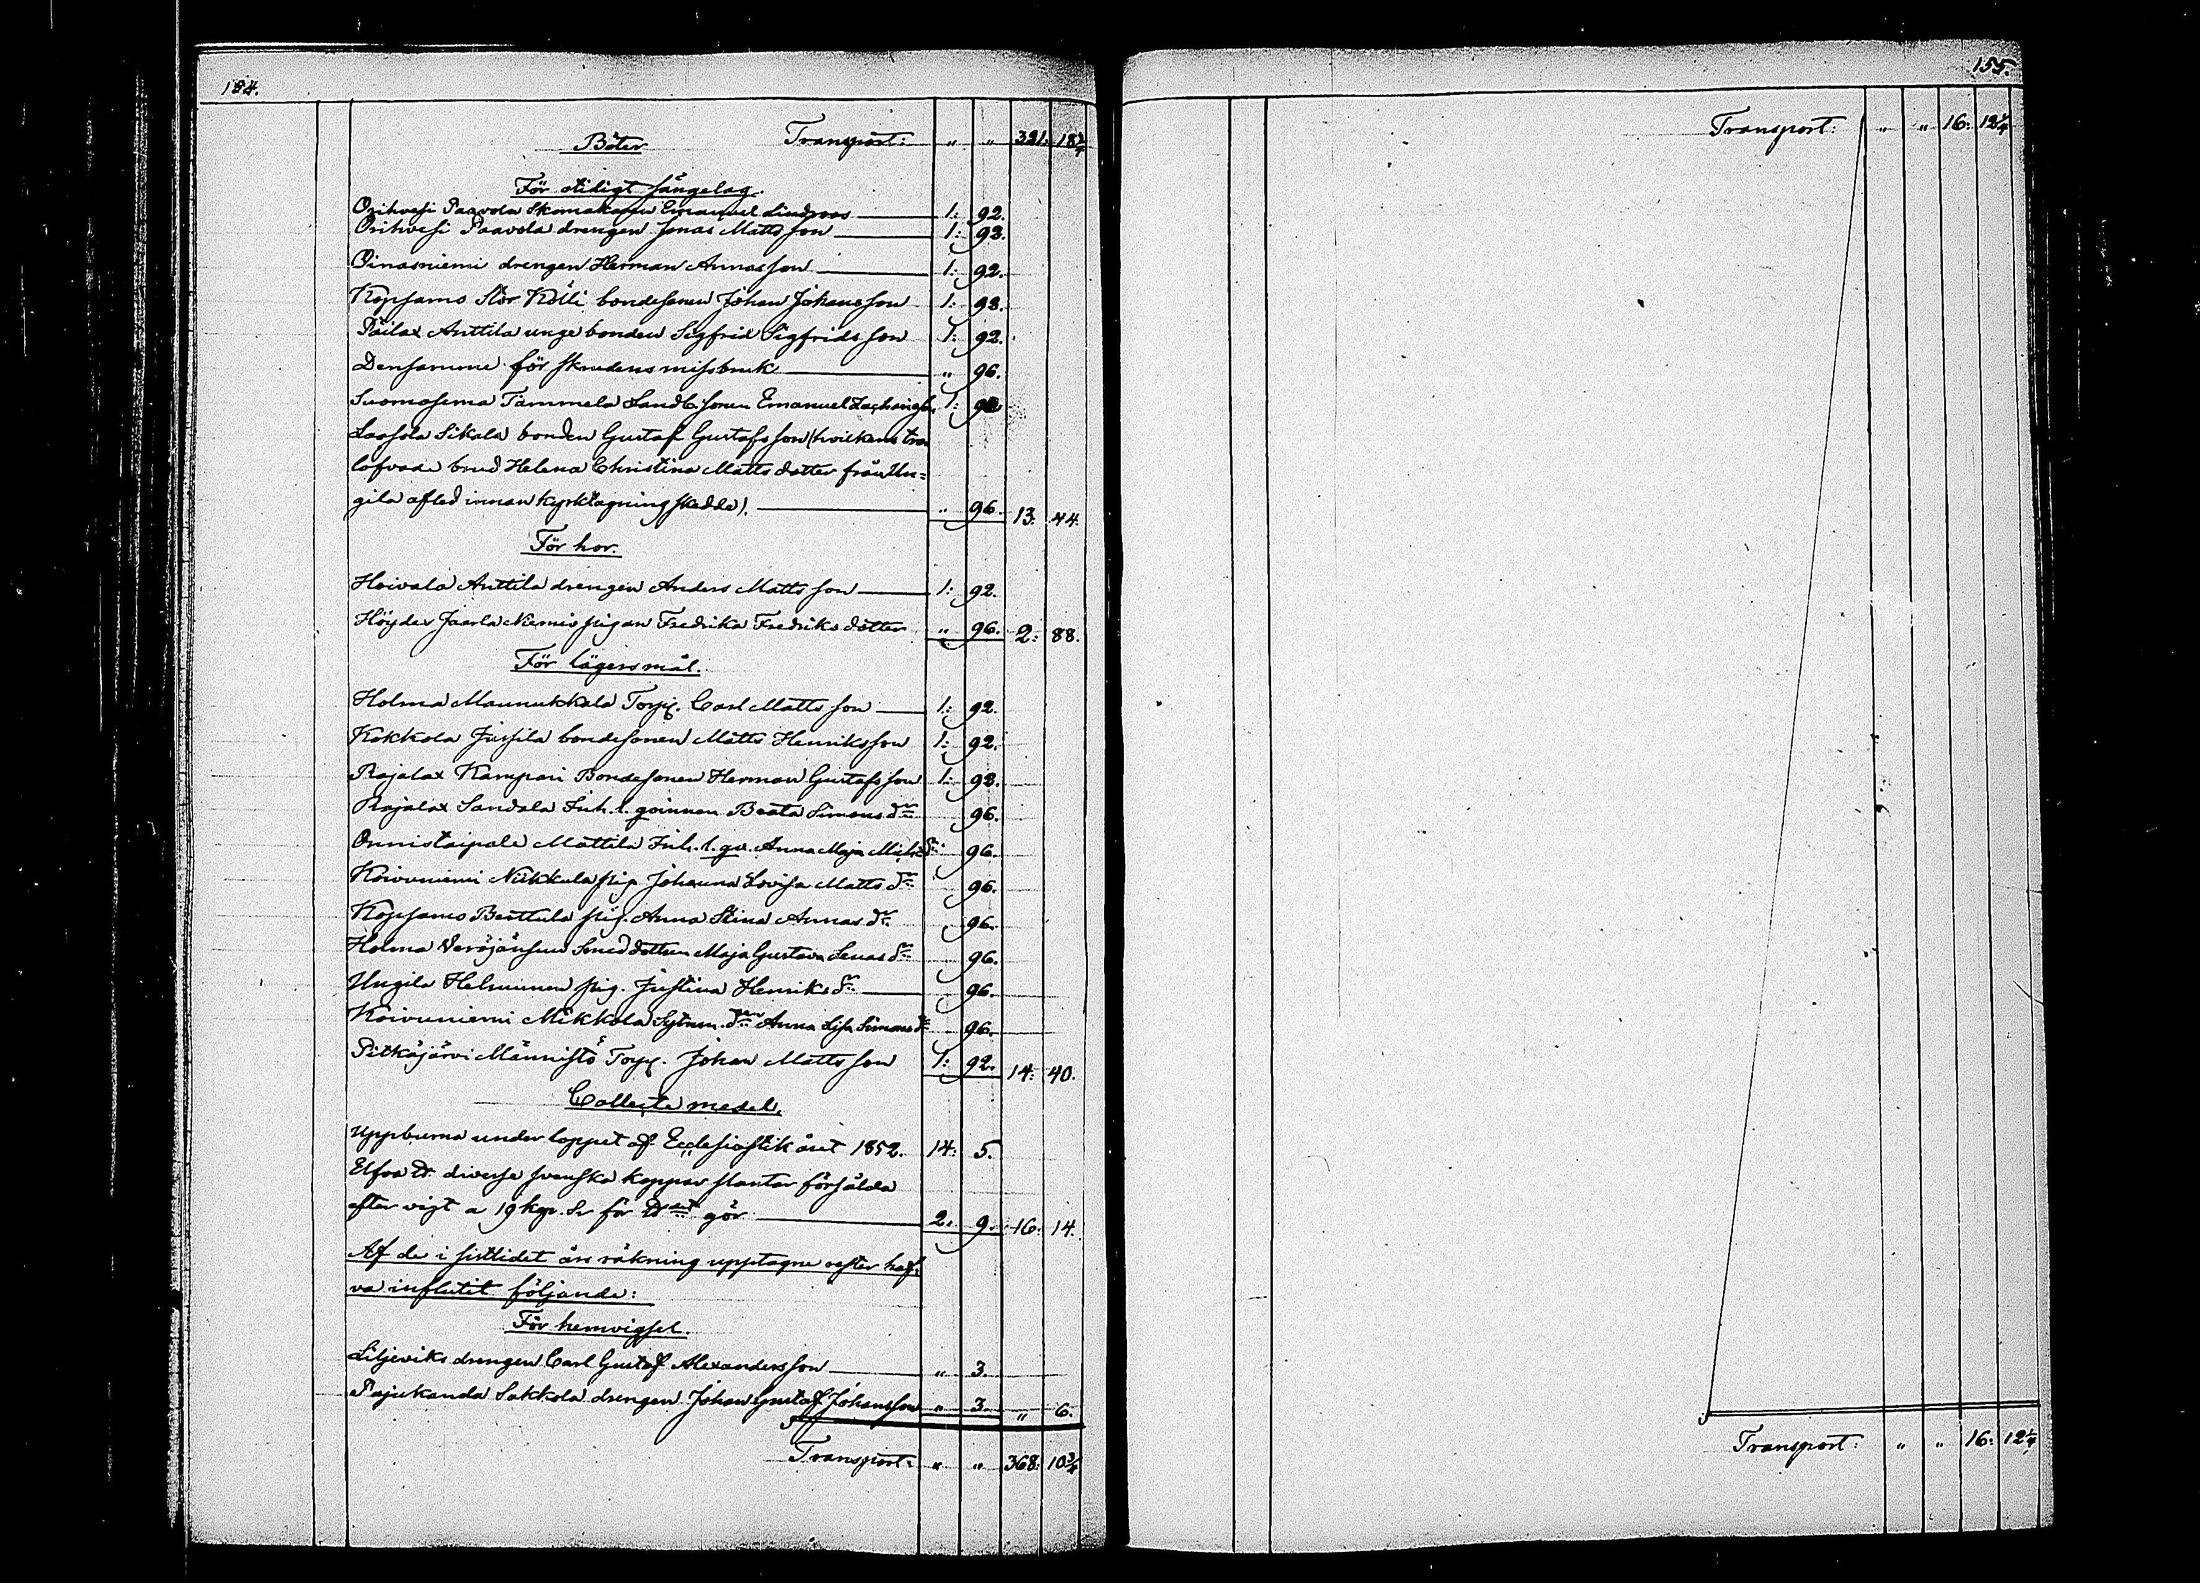 154.
Böter Transport: " " 321. 18 3/4
För otidigt sängelag.
Orihvesi Paavola Skomakaren Emanuel Lindroos 1: 92.
Orihvesi Paavola drengen Jonas Mattsson 1: 92.
Oinasniemi drengen Herman Annasson 1: 92.
Kopsamo Stor Kölli bondesonen Johan Johansson 1: 92.
Päilax Anttila unge bonden Sigfrid Sigfridsson 1: 92.
Densamme för skrudens missbruk " 96.
Suomasema Tammela Landb. sonen Emanuel Zachariass. 1: 92
Laasola Sikala bonden Gustaf Gustafsson (hvilkens tro
lofvade brud Helena Christina Mattsdotter från Un=
gila aflad innan kyrktagning skedde). " 96. 13. 44.
För hor.
Heivala Anttila drengen Anders Mattsson 1: 92.
Höyder Jaarla Niemis pigan Fredrika Fredriksdotter " 96. 2: 88.
För lägersmål.
Holma Maunukkala Torp. Carl Mattsson 1: 92.
Kokkola Jussila bondesonen Matts Henriksson 1: 92.
Rajalax Kampari Bondesonen Herman Gustafsson 1: 92.
Rajalax Sandala Inh. l. qvinnan Beata Simonsdr 96.
Onnistaipale Mattila Inh. l. qv. Anna Maja Michelsdr 96.
Koivuniemi Nikkula pig. Johanna Lovisa Mattsdr 96.
Kopsamo Berttula pig. Anna Stina Annasdr 96.
Holma Smeddottren Maja Gustava Lenasdr 96.
Ungila Helminen pig. Justina Henriksdr 96.
Koivuniemi Mikkola Sytnm. drn Anna Lisa Simonsdr 96.
Pitkäjärvi Männistö Torp. Johan Mattsson 1: 92. 14: 40.
Collecte medel.
Uppburna under loppet af Ecclesiastik året 1852. 14: 5.
Elfva ℔ diverse svenska koppar slantar försålda
efter vigt a 19 kop. Sr för ℔et gör 2. 9. 16: 14.
Af de i sistlidet års räkning upptagne rester haf=
va influtit följande:
För hemvigsel.
Liljeviks drengen Carl Gustaf Alexandersson " 3.
Pajukanda Sakkola drengen Johan Gustaf Johansson " 3. " 6.
Transport: " " 368: 10 3/4
155.
Transport: " " 16: 12 1/4
Transport: " " 16: 12 1/4